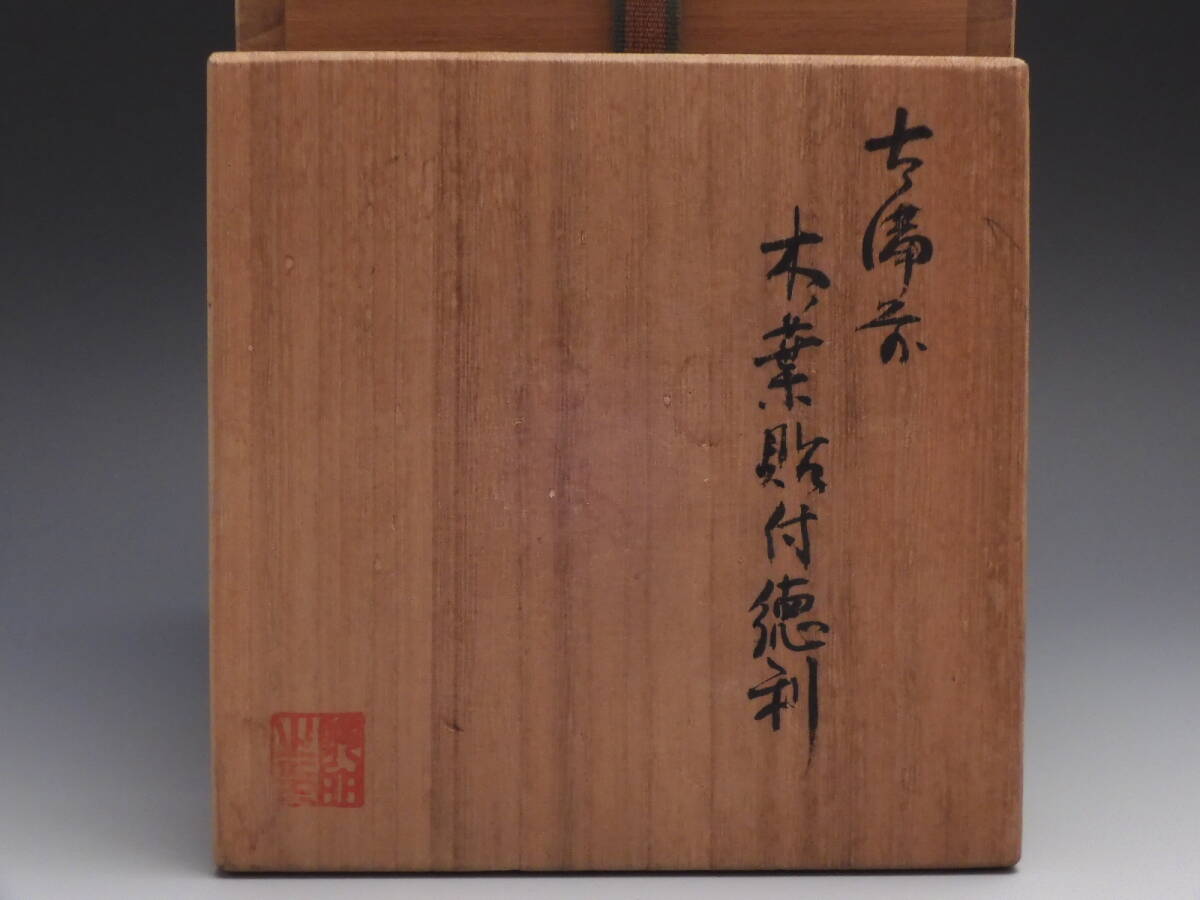 古備前
木葉貼付徳利